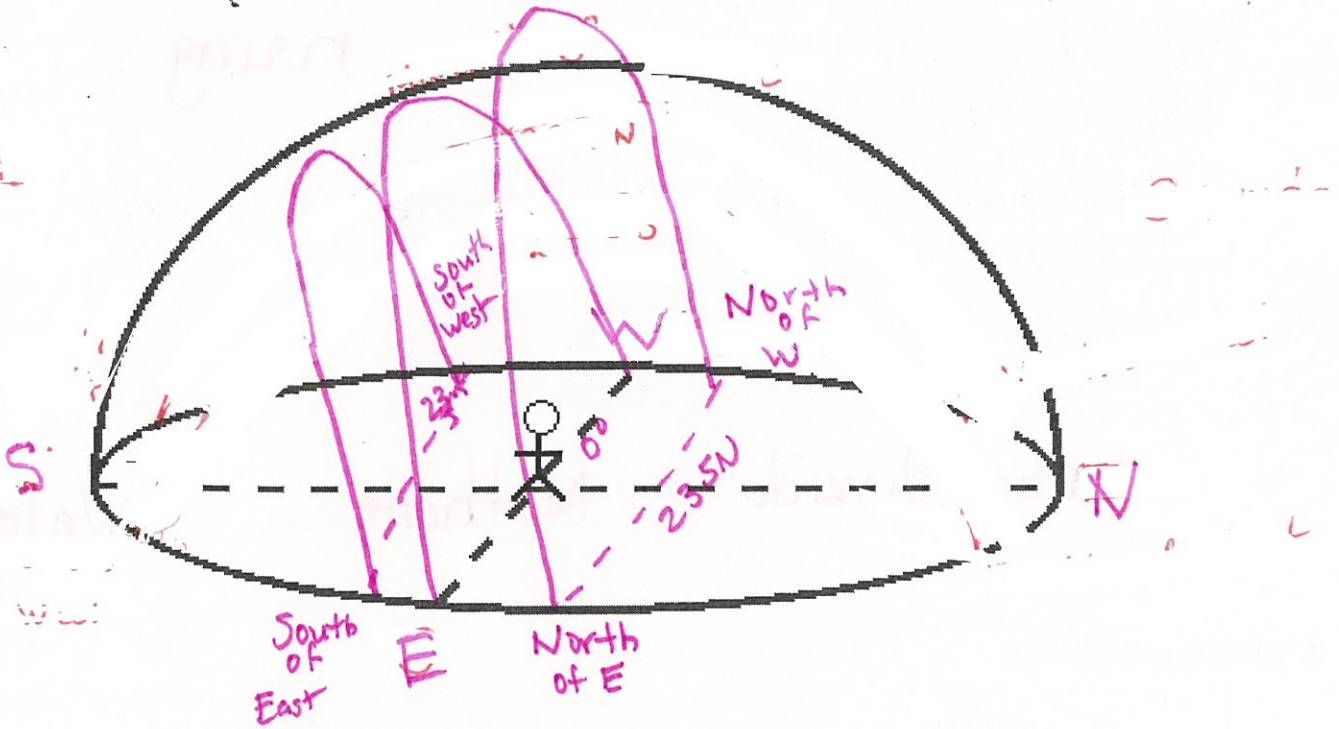 South
of
west
W
North
of
W
23.5
0°
23.5N
S
N
South
of
East
E
North
of E